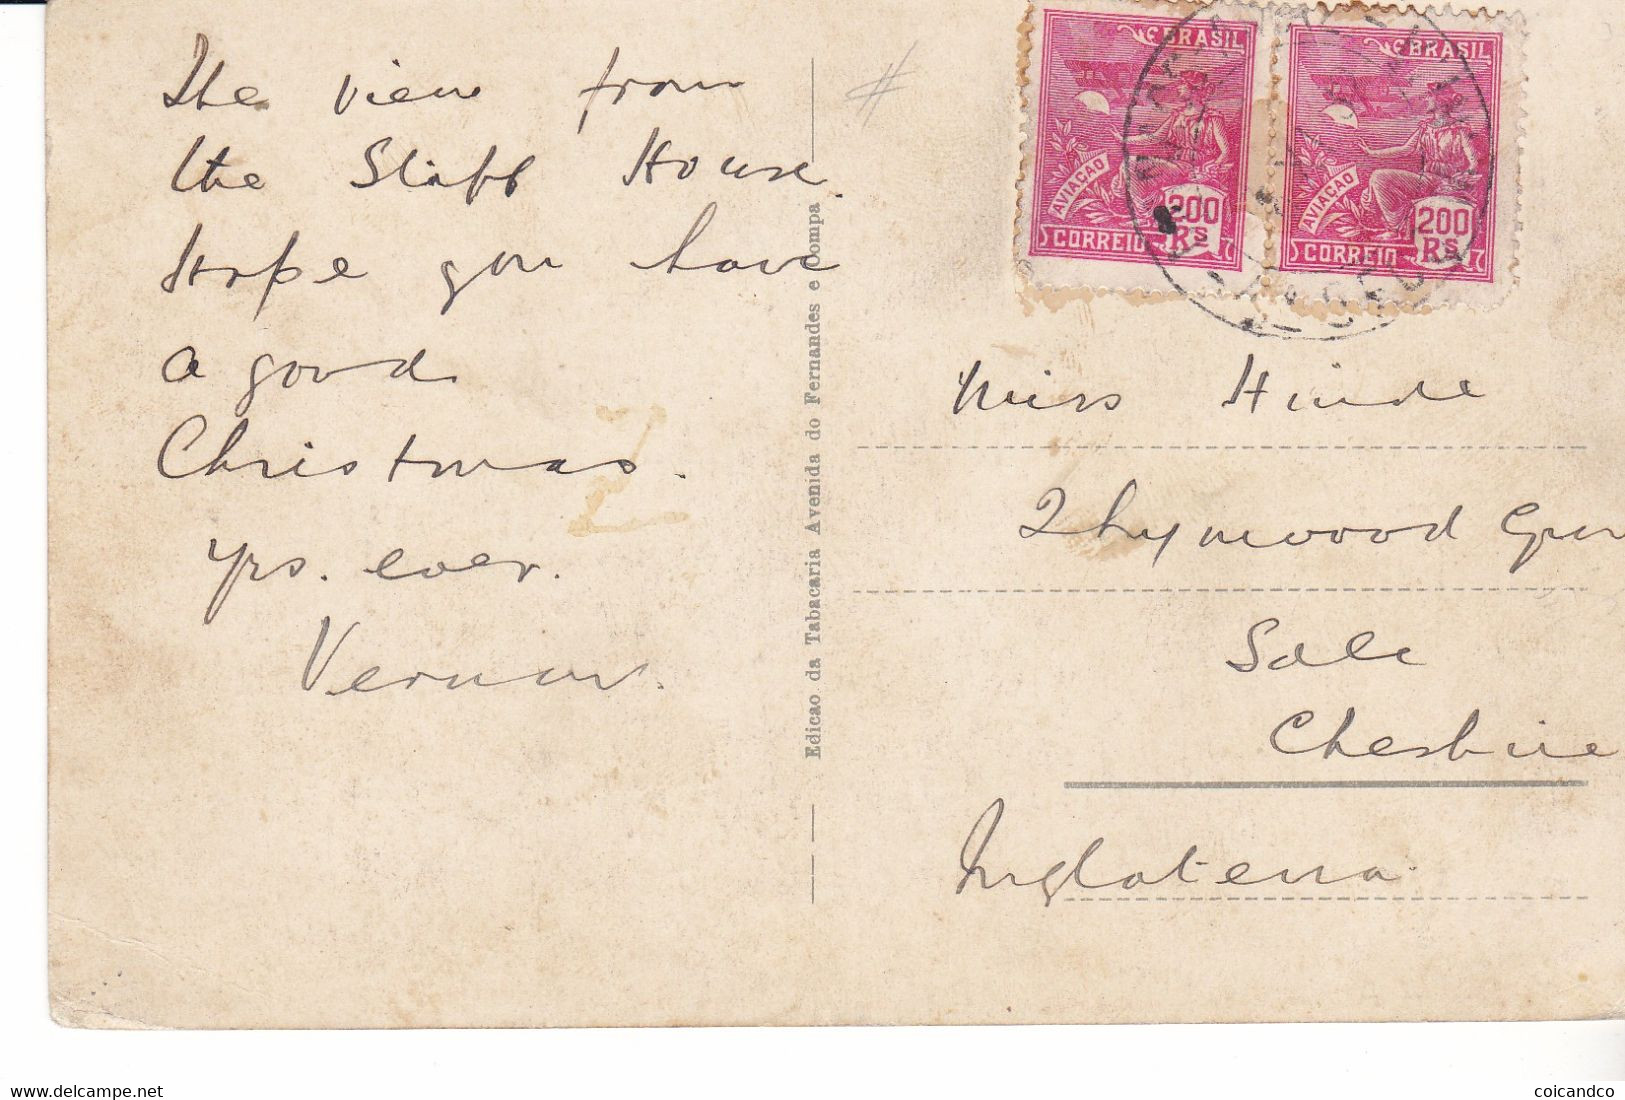 The view from
the Staff House.
Hope you have
a good
Christmas.
yrs. ever.
Vernon.
Edicao da Tabacaria Avenida do Fernandes e Compa
#
BRASIL
AVIAÇAO
200
Rs
CORREIO
BRASIL
AVIAÇAO
200
Rs
CORREIO
Miss Hinde
Sale
Cheshire
Inglaterra.
www.delcampe.net
coicandco